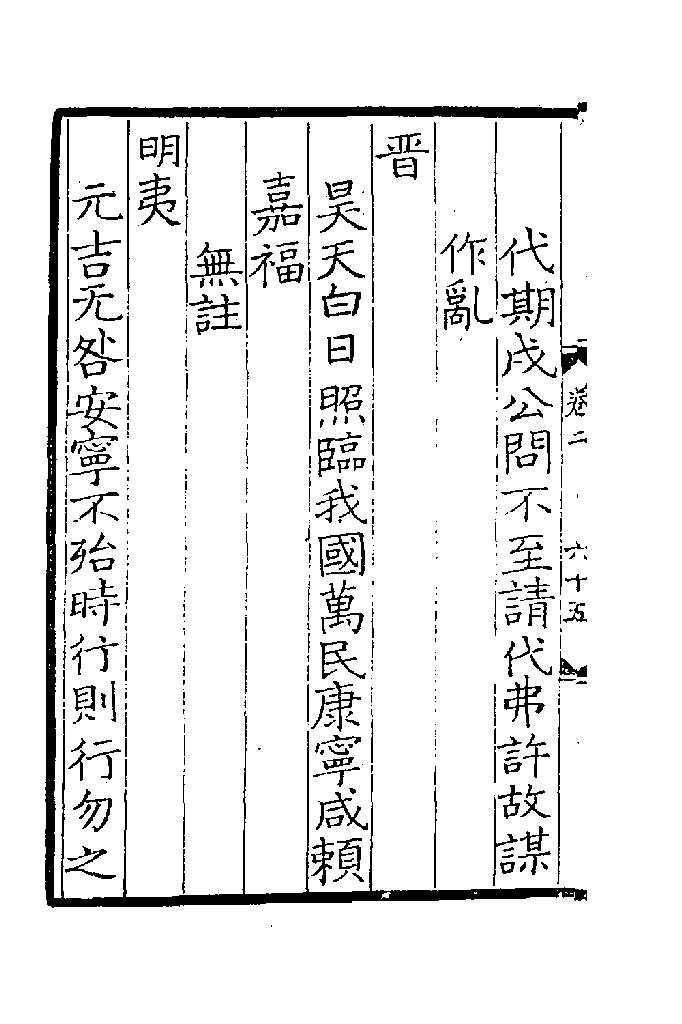 卷二 六十五
代期戍公問不至請代弗許故謀
作亂
晋
昊天白日照臨我國萬民康寧咸賴
嘉福
無註
明夷
元吉无咎安寧不殆時行則行勿之